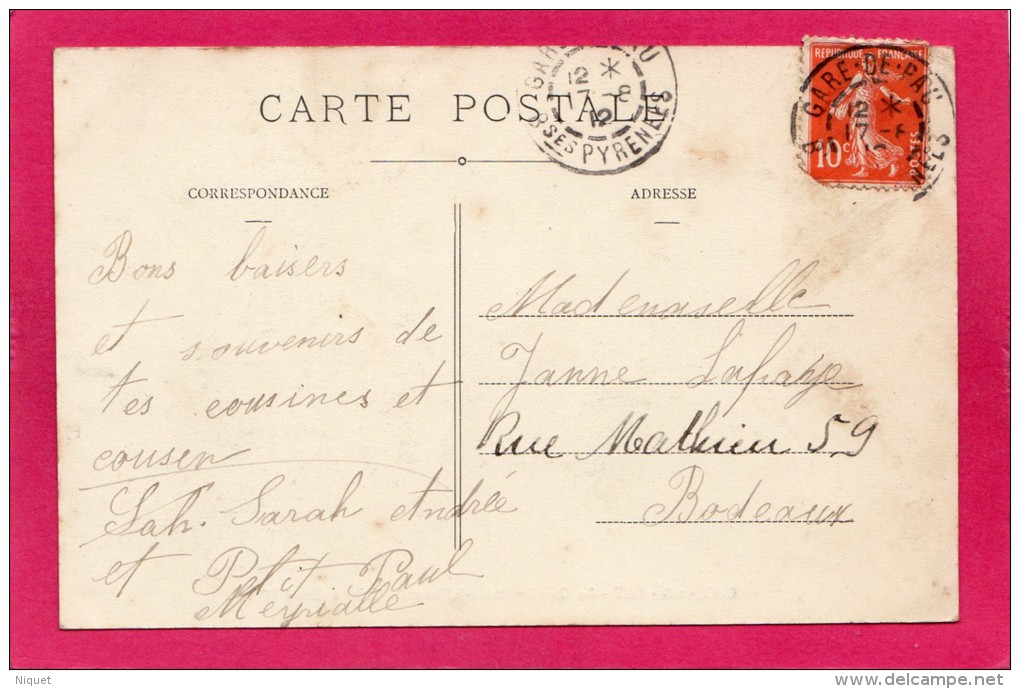 CARTE POSTALE
GARE DE PAU
12 *
17 - 8
12
BSES PYRENEES
REPUBLIQUE FRANÇAISE
GARE-DE-PAU
12 *
17 - 8
10c
POSTES
CORRESPONDANCE
ADRESSE
Bons baisers
et souvenirs de
tes cousines et
cousen
Sarah Andrée
et Petit Paul
Mademaselle
Janne Lafaye
Rue Mathieu 59
Bodeaux
Niquet
www.delcampe.net